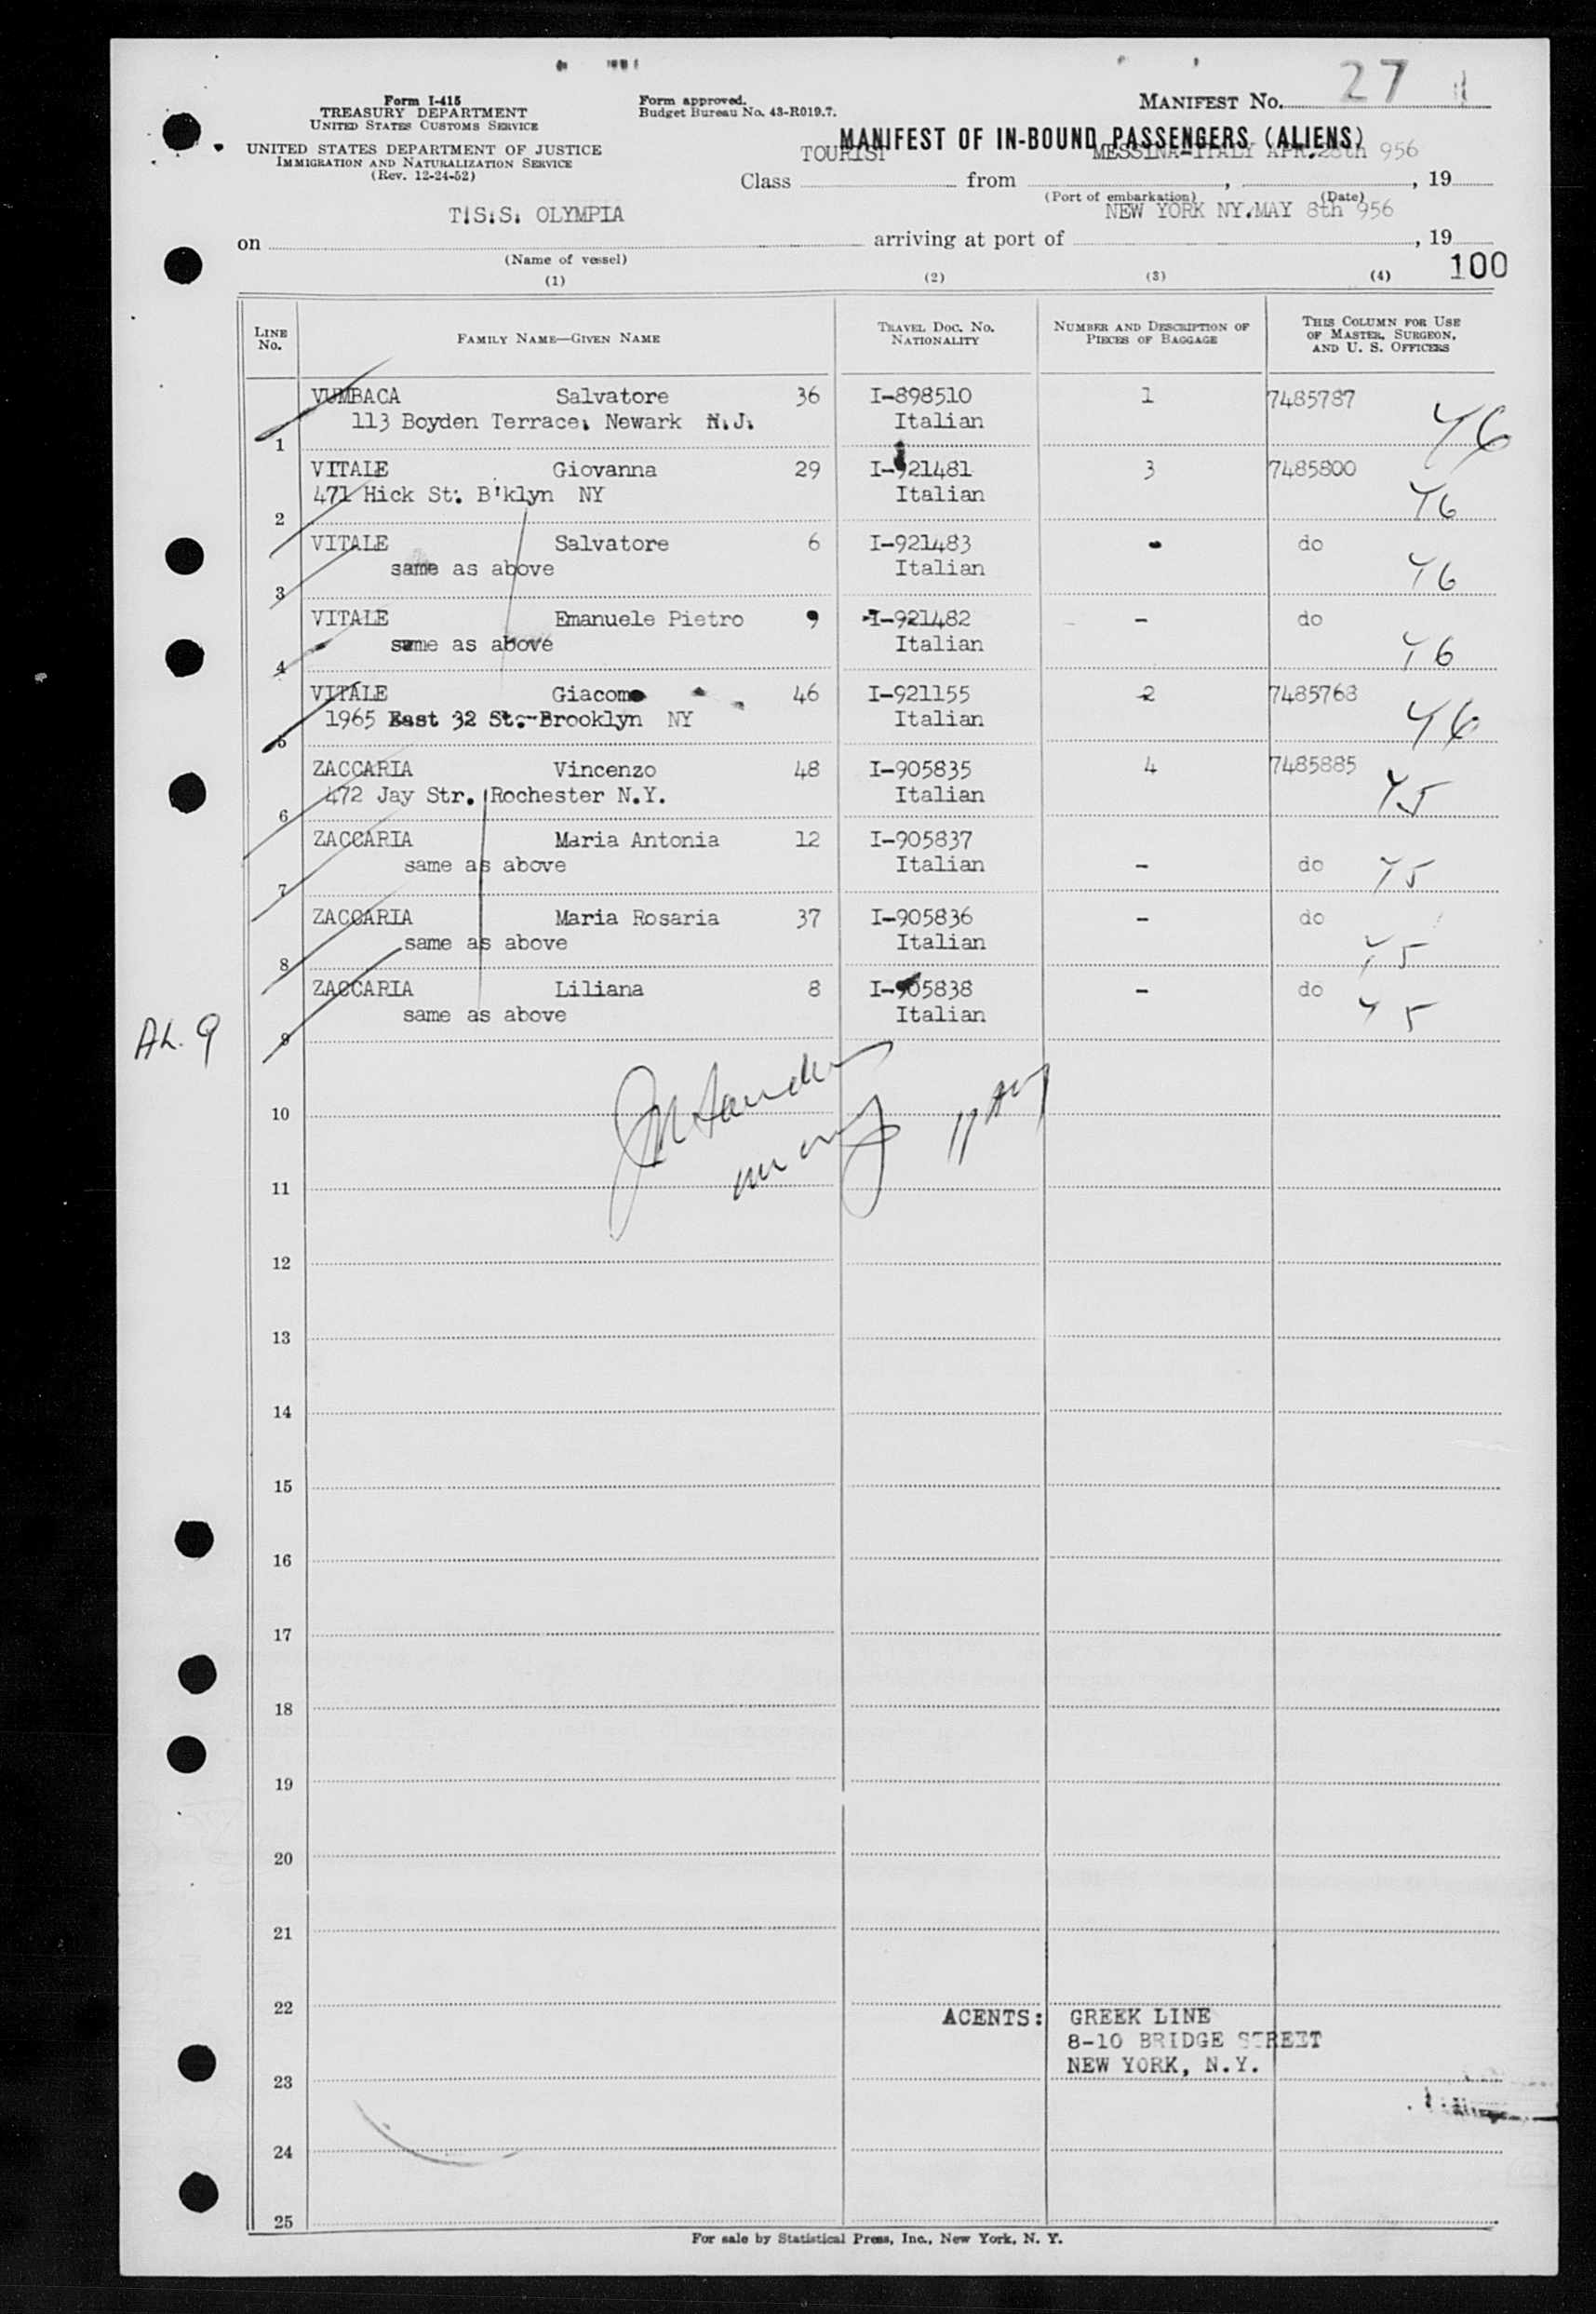 27
Form I-415
TREASURY DEPARTMENT
UNITED STATES CUSTOMS SERVICE
UNITED STATES DEPARTMENT OF JUSTICE
IMMIGRATION AND NATURALIZATION SERVICE
(Rev. 12-24-52)
Form approved.
Budget Bureau No. 43-R019.7.
MANIFEST No.
MANIFEST OF IN-BOUND PASSENGERS (ALIENS)
TOURIST MESSINA-ITALY APR.28th 956
Class from , , 19
(Port of embarkation) (Date)
T.S.S. OLYMPIA NEW YORK NY.MAY 8th 956
on arriving at port of , 19
(Name of vessel)
100
(1) (2) (3) (4)
LINE No. FAMILY NAME—GIVEN NAME TRAVEL DOC. No. NATIONALITY NUMBER AND DESCRIPTION OF PIECES OF BAGGAGE THIS COLUMN FOR USE OF MASTER, SURGEON, AND U. S. OFFICERS
VUMBACA Salvatore 36 I-898510 1 7485787
113 Boyden Terrace. Newark N.J. Italian Y6
1
VITALE Giovanna 29 I-921481 3 7485800
471 Hick St. B'klyn NY Italian Y6
2
VITALE Salvatore 6 I-921483 - do
same as above Italian Y6
3
VITALE Emanuele Pietro 9 I-921482 - do
same as above Italian Y6
4
VITALE Giacomo 46 I-921155 2 7485768
1965 East 32 St.-Brooklyn NY Italian Y6
5
ZACCARIA Vincenzo 48 I-905835 4 7485885
472 Jay Str. Rochester N.Y. Italian Y5
6
ZACCARIA Maria Antonia 12 I-905837
same as above Italian - do Y5
7
ZACCARIA Maria Rosaria 37 I-905836 - do
same as above Italian Y5
8
ZACCARIA Liliana 8 I-905838 - do
same as above Italian Y5
9
10
11
12
13
14
15
16
17
18
19
20
21
22
ACENTS: GREEK LINE
8-10 BRIDGE STREET
NEW YORK, N.Y.
23
24
25
For sale by Statistical Press, Inc., New York, N. Y.